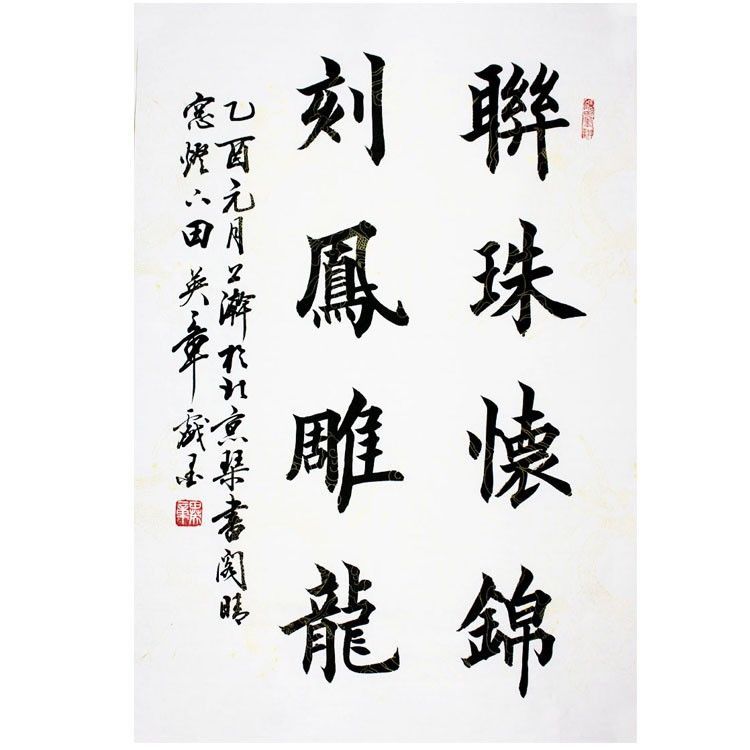 聯珠懷錦
刻鳳雕龍
乙酉元月上澣於北京琴書閣晴
窓燈下田英章戲墨